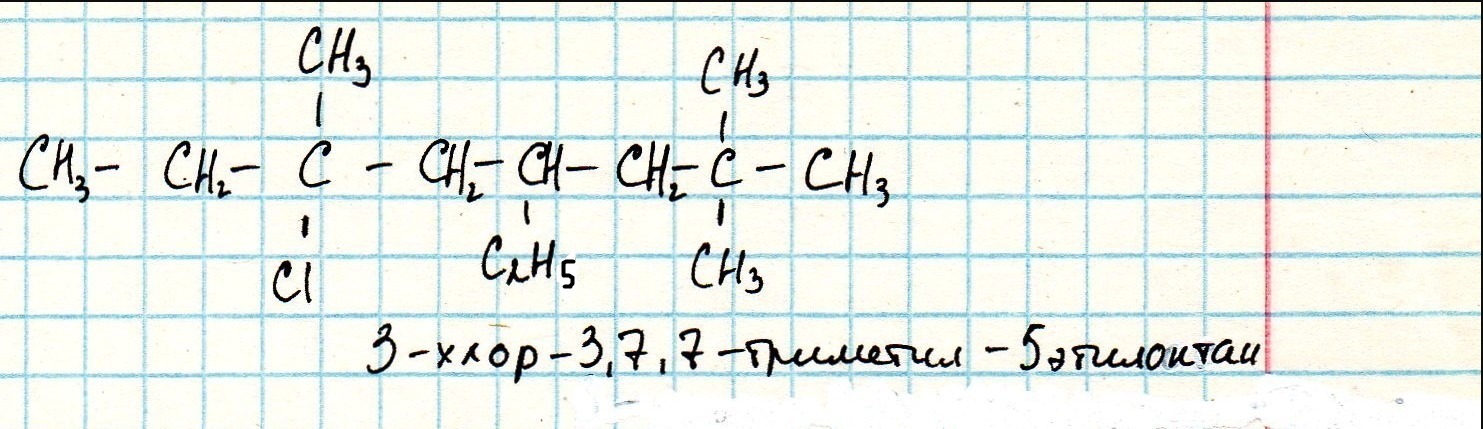 CH₃ CH₃
CH₃- CH₂- C - CH₂- CH- CH₂- C - CH₃
Cl C₂H₅ CH₃
3-хлор-3,7,7-триметил-5этилоктан